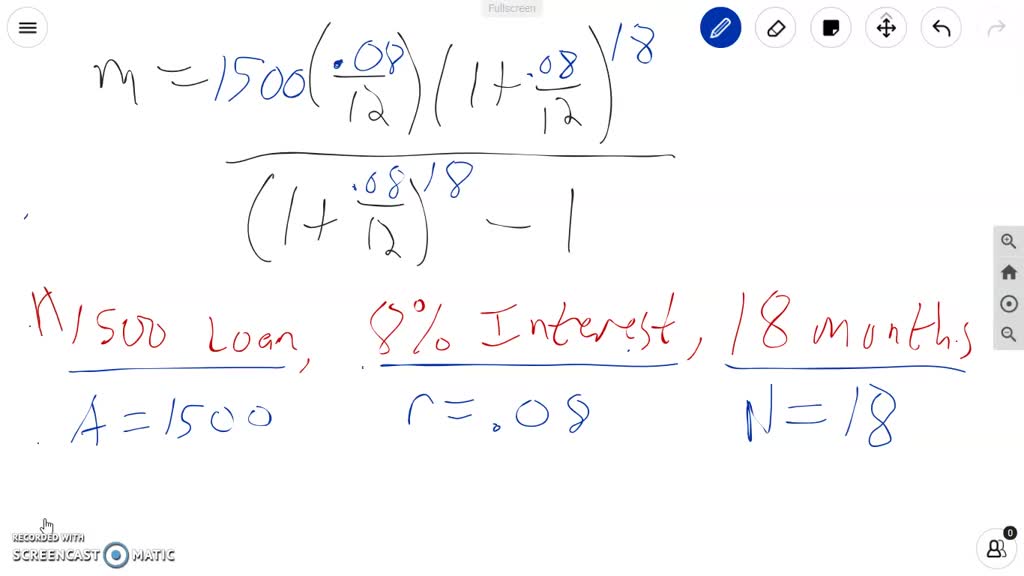 Fullscreen
m = 1500 (.08/12) (1 + .08/12)^18
(1 + .08/12)^18 - 1
1500 Loan, 8% Interest, 18 months
A = 1500 r = .08 N = 18
0
RECORDED WITH
SCREENCAST MATIC